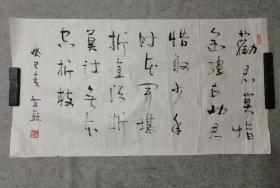 勸君莫惜
金縷衣勸君
惜取少年
時花開堪
折直須折
莫待無花
空折枝
癸巳春